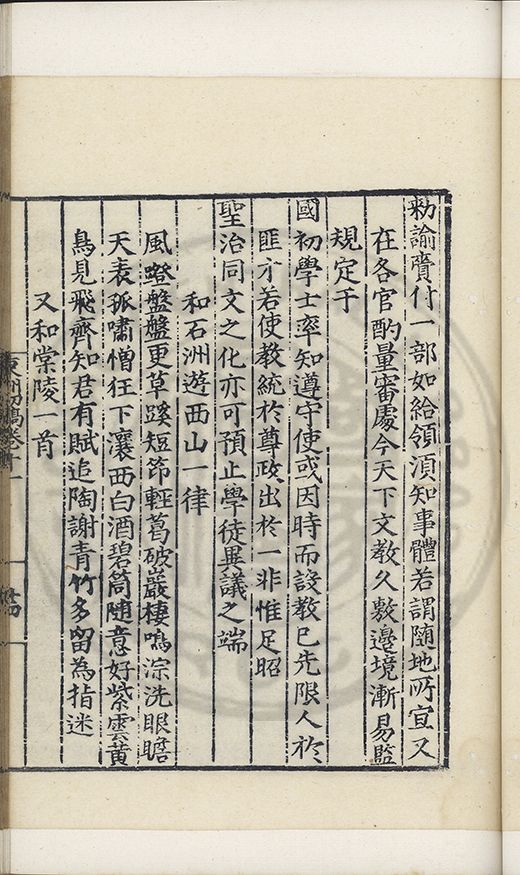 勑諭賷付一部如給領須知事體若謂随地所宜又
在各官酌量審處今天下文教久敷邊境漸易監
規定于
國初學士率知遵守使或因時而設教已先限人於
匪才若使教統於尊政出於一非惟足昭
聖治同文之化亦可預止學徒異議之端
和石洲遊西山一律
風磴盤盤更草蹊短笻輕葛破巖棲鳴淙洗眼瞻
天表孤嘯憎狂下瀼西白酒碧筒随意好紫雲黃
鳥見飛齊知君有賦追陶謝青竹多留為指迷
又和棠陵一首